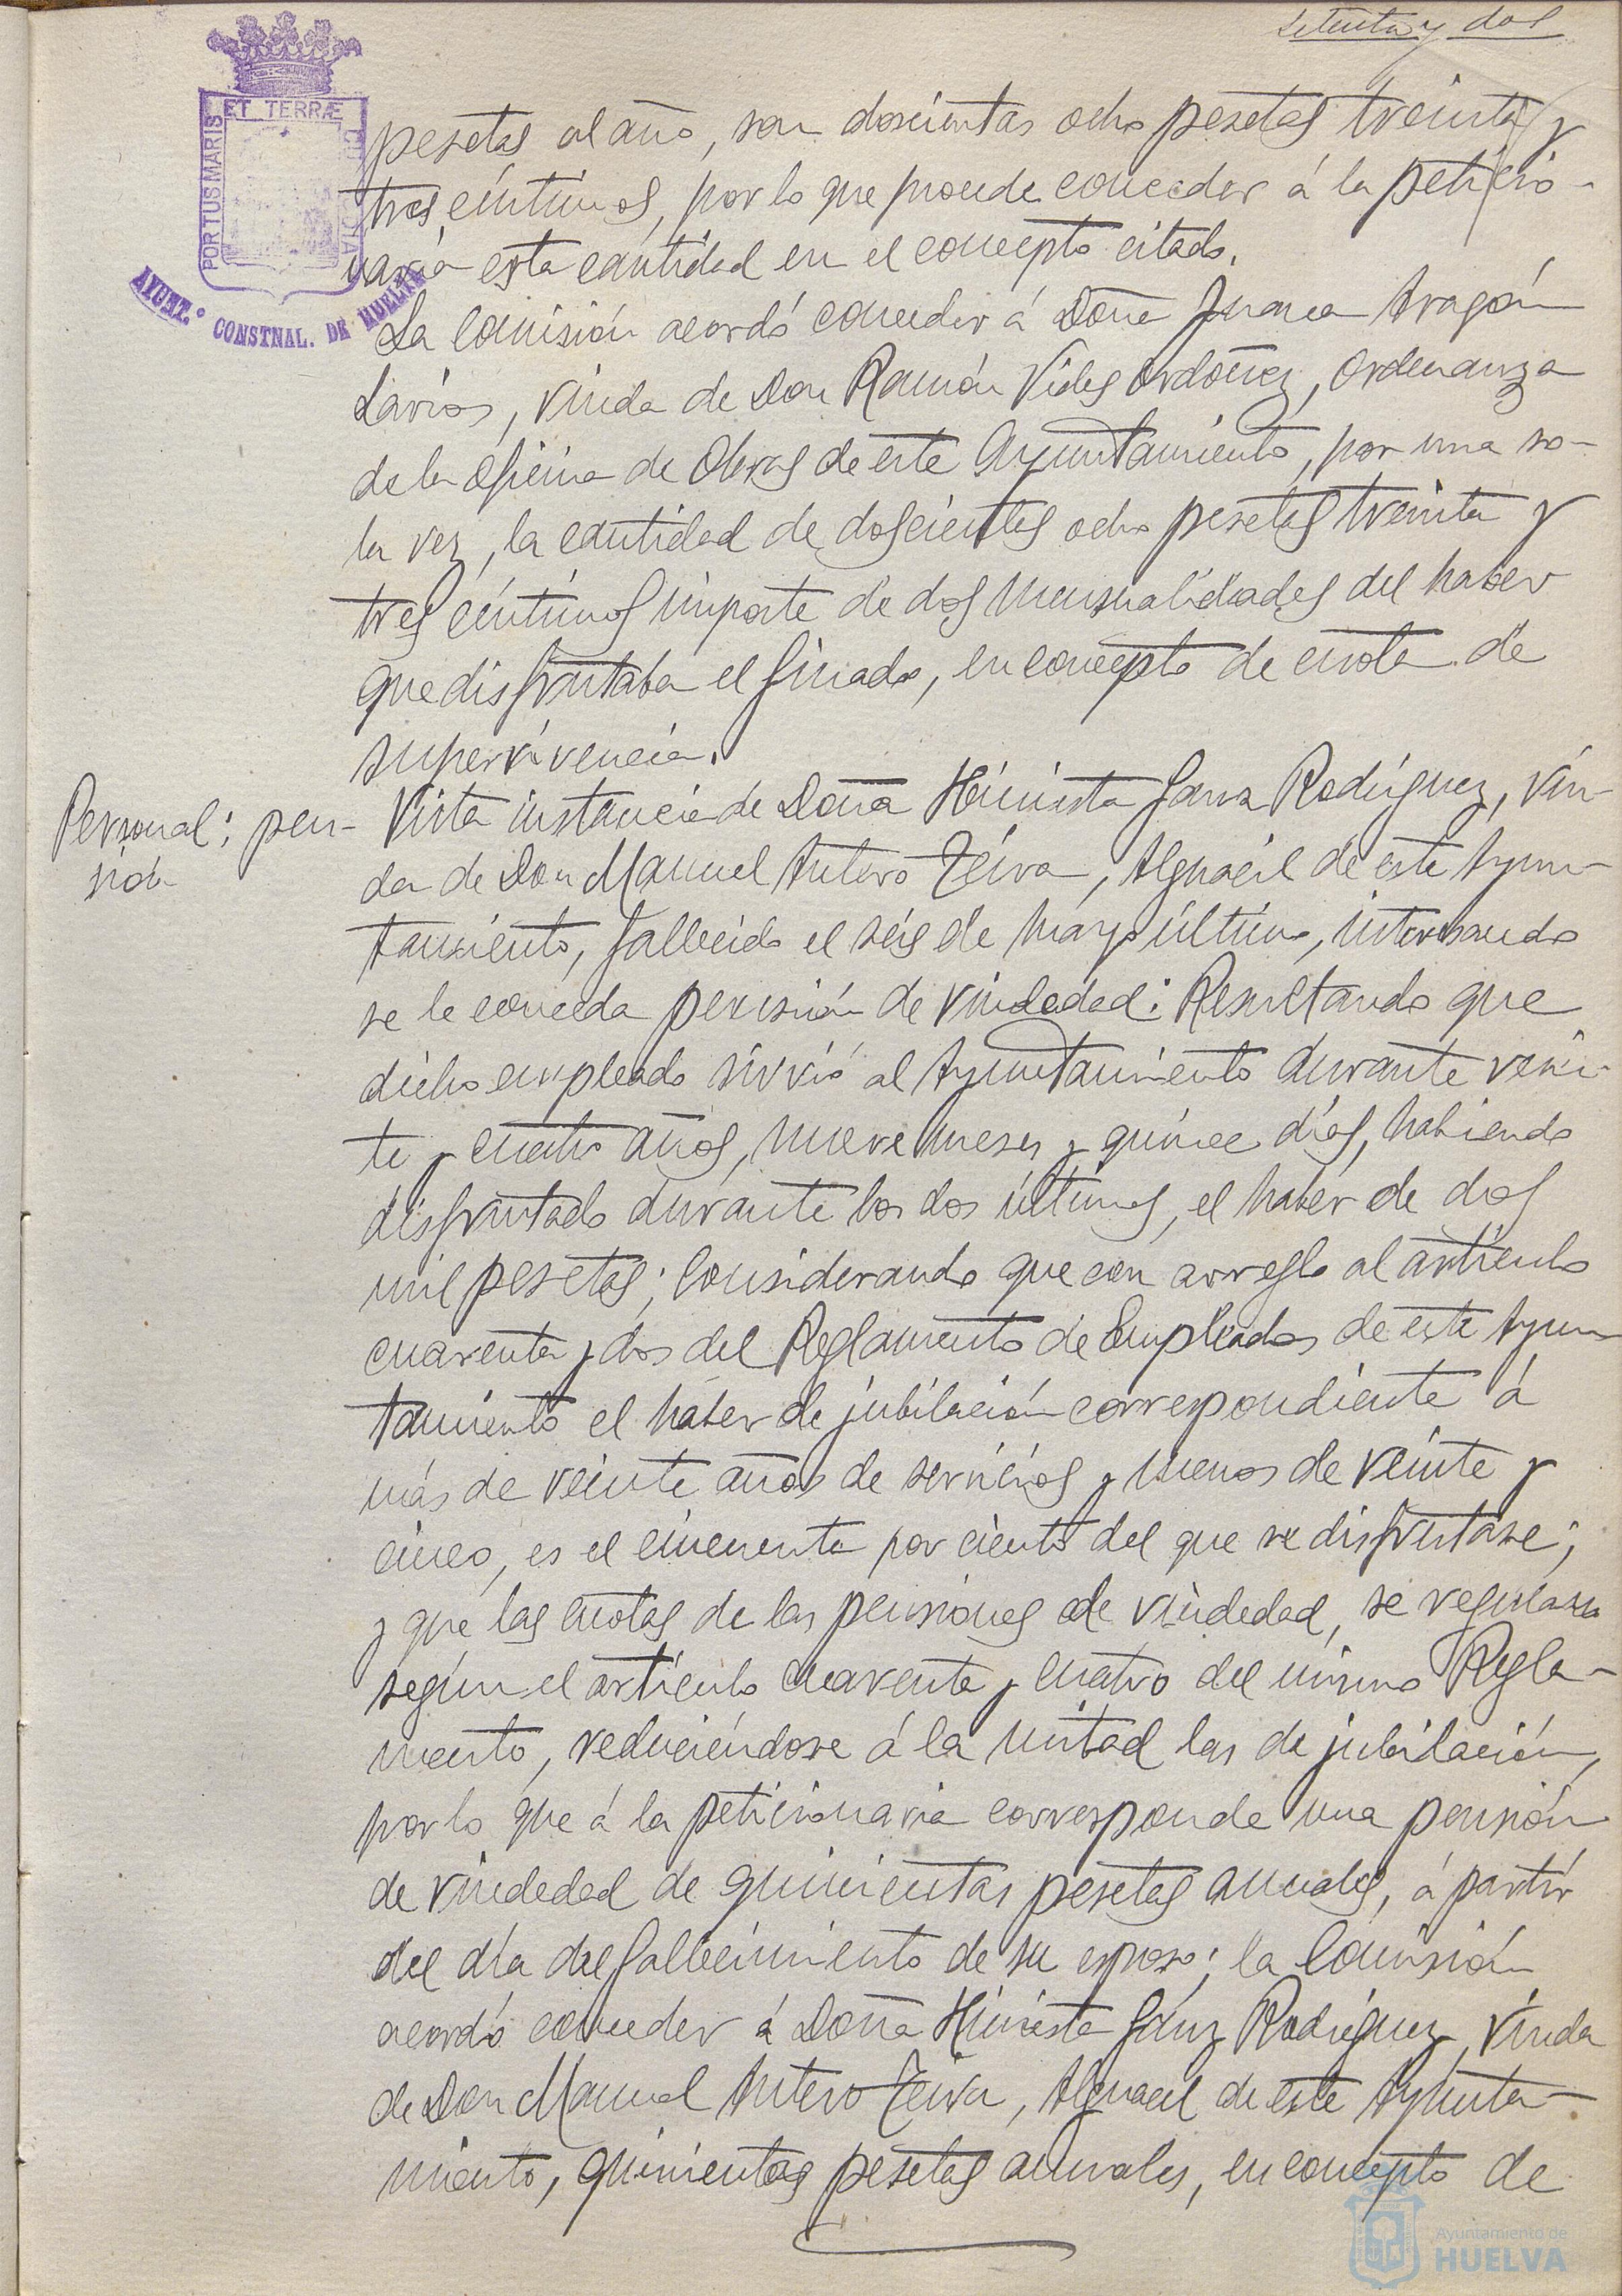 setenta y dos
ET TERRÆ
PORTUS MARIS
CUSTODIA
AYUNT.º CONSTNAL. DE HUELVA
pesetas al año, son doscientas ocho pesetas treinta y
tres céntimos, por lo que procede conceder á la peticio-
naria esta cantidad en el concepto citado.
La Comisión acordó conceder á Doña Juana Aragón
Larios, viuda de Don Ramón Vides Ordoñez, Ordenanza
de la oficina de Obras de este Ayuntamiento, por una so-
la vez, la cantidad de doscientas ocho pesetas treinta y
tres céntimos importe de dos mensualidades del haber
que disfrutaba el finado, en concepto de cuota de
supervivencia.
Personal: pen-
sión
Vista instancia de Doña Hiniesta Sanz Rodríguez, viu-
da de Don Manuel Antero Teiva, Alguacil de este Ayun-
tamiento, fallecido el seis de marzo último, interesando
se le conceda pensión de viudedad: Resultando que
dicho empleado sirvió al Ayuntamiento durante vein-
te y cuatro años, nueve meses y quince días, habiendo
disfrutado durante los dos últimos, el haber de dos
mil pesetas; Considerando que con arreglo al artículo
cuarenta y dos del Reglamento de Empleados de este Ayun
tamiento el haber de jubilación correspondiente á
más de veinte años de servicios y menos de veinte y
cinco, es el cincuenta por ciento del que se disfrutase;
y que las cuotas de las pensiones de viudedad, se regulan
según el artículo cuarenta y cuatro del mismo Regla-
mento, reduciéndose á la mitad las de jubilación,
por lo que á la peticionaria corresponde una pensión
de viudedad de quinientas pesetas anuales, á partir
del día del fallecimiento de su esposo; la Comisión
acordó conceder á Doña Hiniesta Sánz Rodríguez, viuda
de Don Manuel Antero Teiva, Alguacil de este Ayunta-
miento, quinientas pesetas anuales, en concepto de
Ayuntamiento de
HUELVA